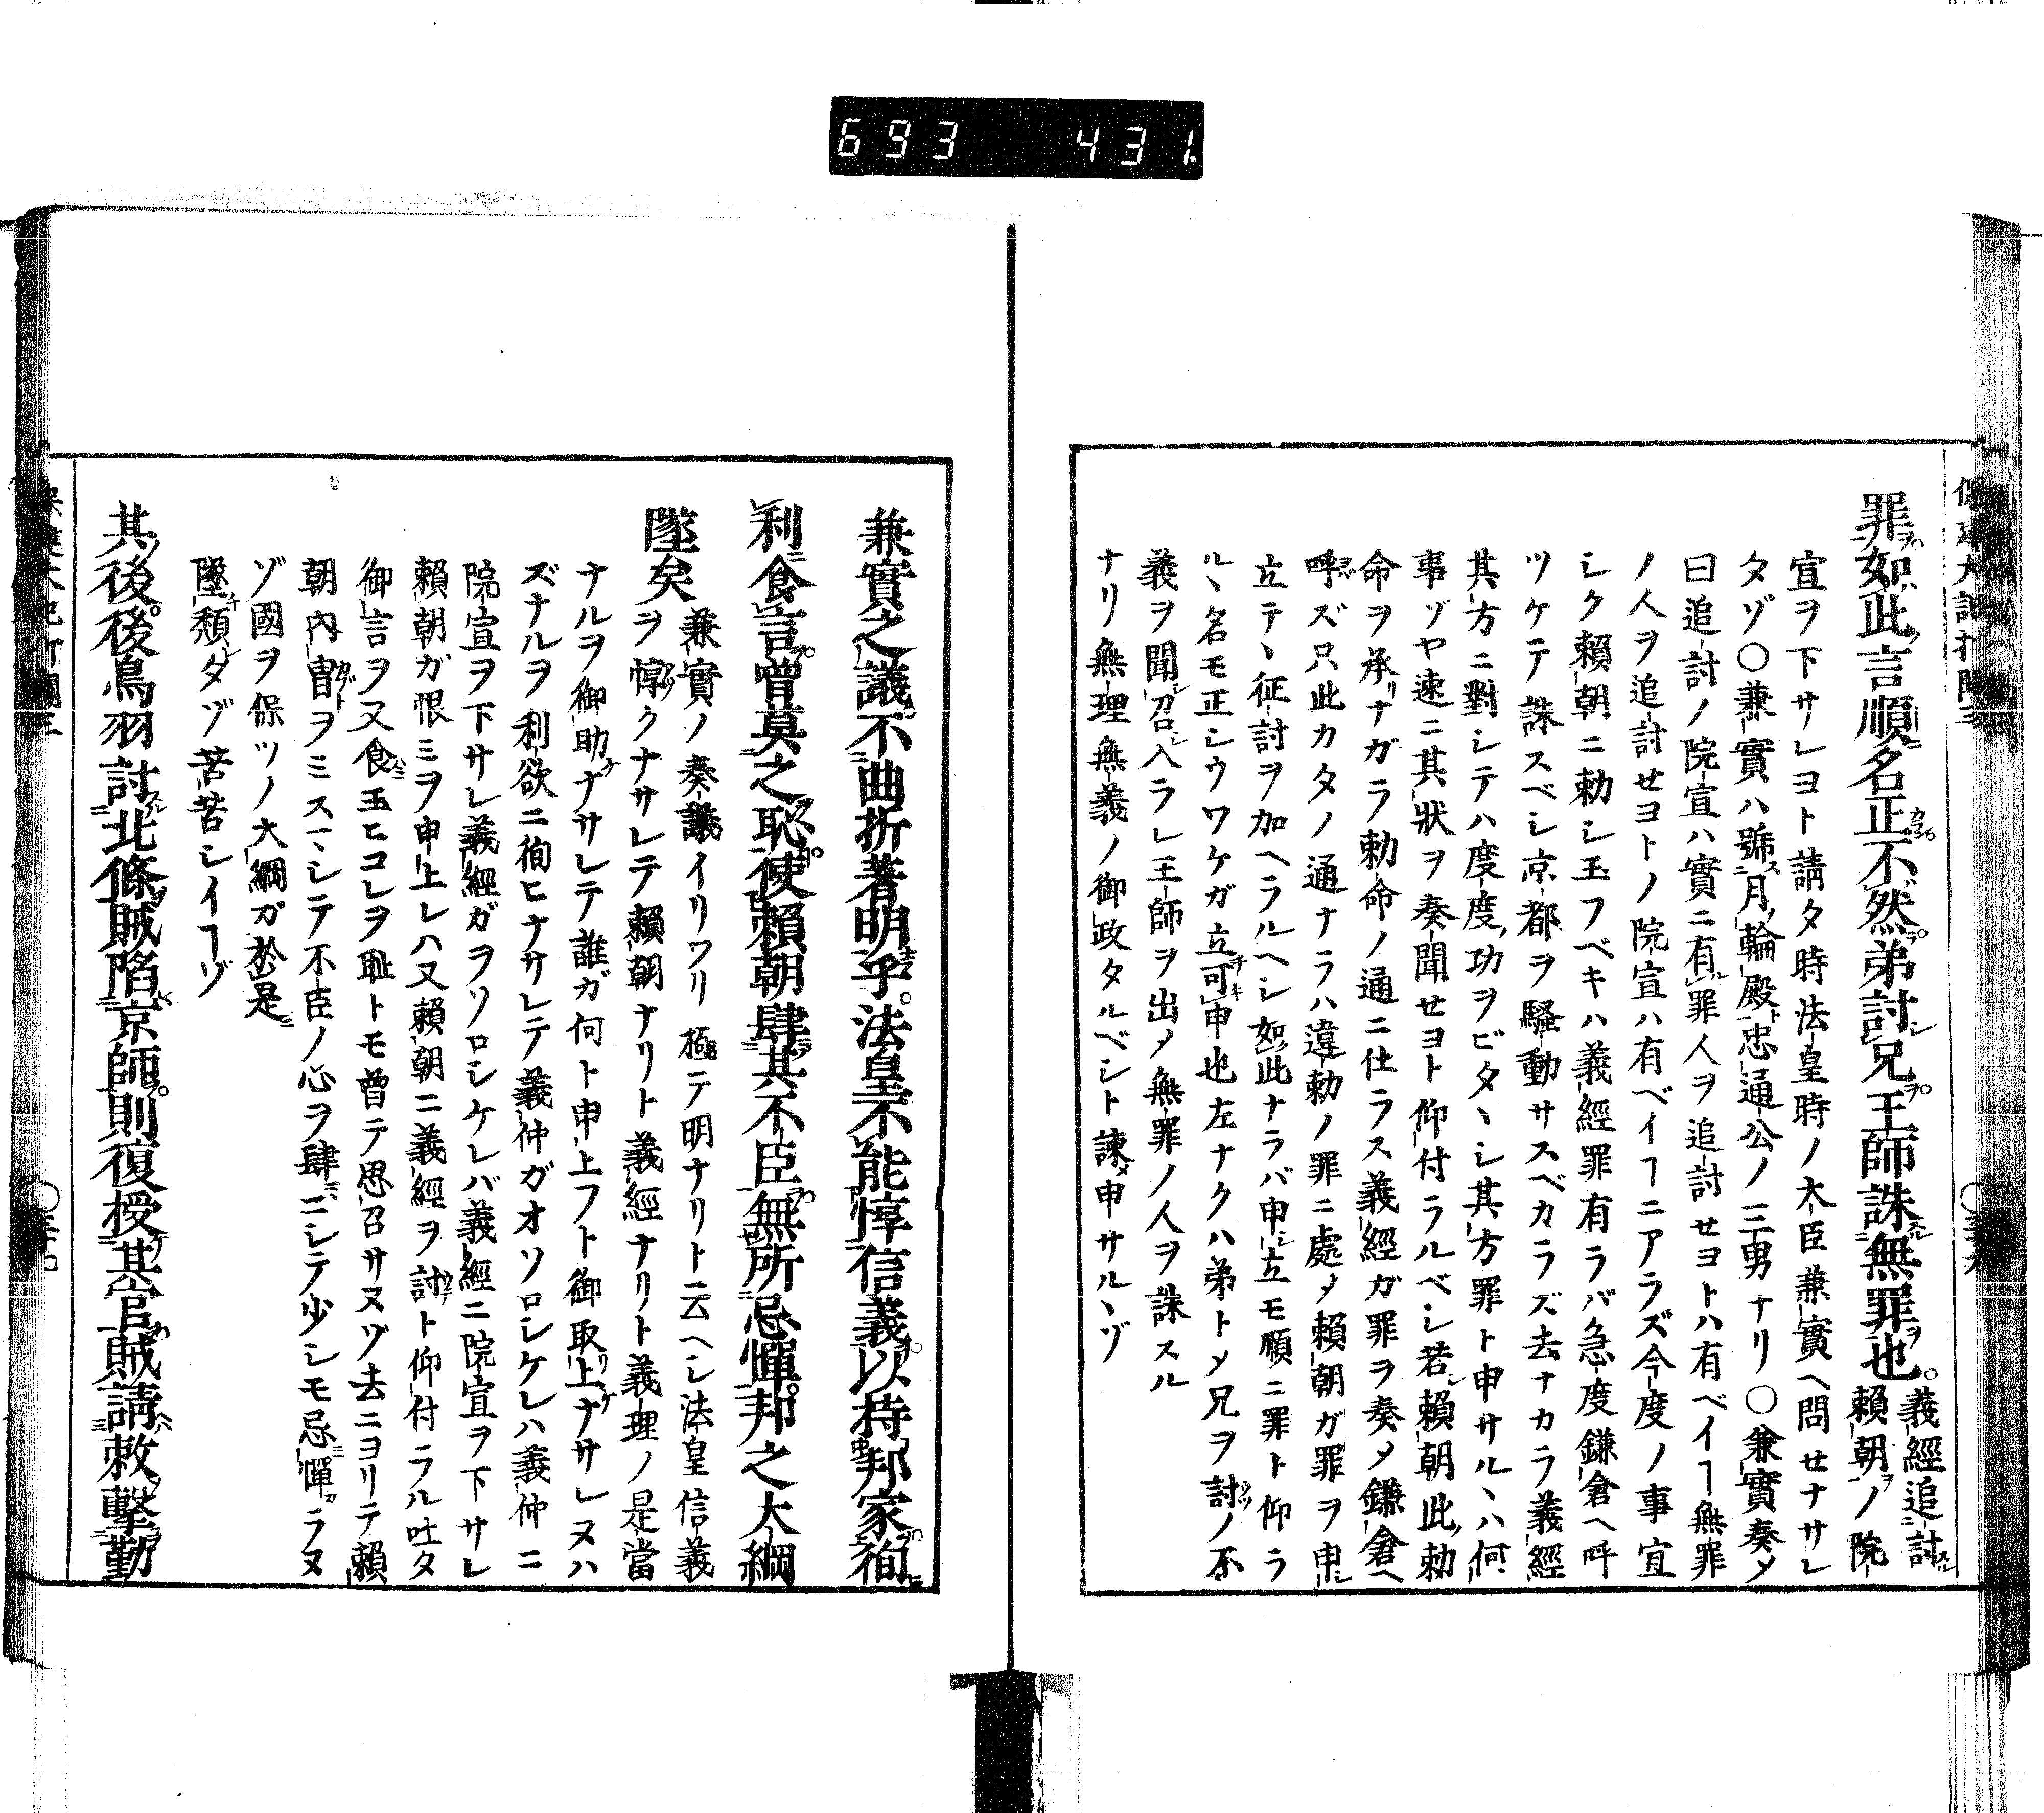 693 431.
罪如此言順名正不然弟討兄王師誅無罪也。義經追討
賴朝ノ院
宣ヲ下サレヨト請タ時法皇時ノ大臣兼實ヘ問セナサレ
タゾ〇兼實ハ號月輪殿忠通公ノ三男ナリ〇兼實奏メ
曰追討ノ院宣ハ實ニ有罪人ヲ追討セヨトハ有ベイヿ無罪
ノ人ヲ追討セヨトノ院宣ハ有ベイヿニアラズ今度ノ事宜
シク賴朝ニ勅シ玉フベキハ義經罪有ラバ急度鎌倉ヘ呼
ツケテ誅スベシ京都ヲ騷動サスベカラズ去ナカラ義經
其方ニ對シテハ度度功ヲビタヽシ其方罪ト申サルヽハ何
事ゾヤ速ニ其狀ヲ奏聞セヨト仰付ラルベシ若賴朝此勅
命ヲ承ナガラ勅命ノ通ニ仕ラス義經ガ罪ヲ奏メ鎌倉ヘ
呼ズ只此カタノ通ナラハ違勅ノ罪ニ處メ賴朝ガ罪ヲ申
立テヽ征討ヲ加ヘラルヘシ如此ナラバ申立モ順ニ罪ト仰ラ
ルヽ名モ正シウワケガ立可申也左ナクハ弟トメ兄ヲ討ノ不
義ヲ聞召入ラレ王師ヲ出メ無罪ノ人ヲ誅スル
ナリ無理無義ノ御政タルベシト諫申サルヽゾ
兼實之議不曲折著明乎。法皇不能惇信義以持邦家徇
利食言曾莫之恥使賴朝肆其不臣無所忌憚邦之大綱
墜矣兼實ノ奏議イリワリ極テ明ナリト云ヘシ法皇信義
ヲ惇クナサレテ賴朝ナリト義經ナリト義理ノ是當
ナルヲ御助ナサレテ誰ガ何ト申上フト御取上ナサレヌハ
ズナルヲ利欲ニ徇ヒナサレテ義仲ガオソロシケレハ義仲ニ
院宣ヲ下サレ義經ガヲソロシケレバ義經ニ院宣ヲ下サレ
賴朝ガ恨ミヲ申上レハ又賴朝ニ義經ヲ討ト仰付ラル吐タ
御言ヲ又食玉ヒコレヲ耻トモ曾テ思召サヌゾ去ニヨリテ賴
朝內冑ヲミスヽシテ不臣ノ心ヲ肆ニシテ少シモ忌憚ラヌ
ゾ國ヲ保ツノ大綱ガ於是
墜頹タゾ苦苦シイヿゾ
其後後鳥羽討北條賊陷京師則復授其官賊請敕擊勤